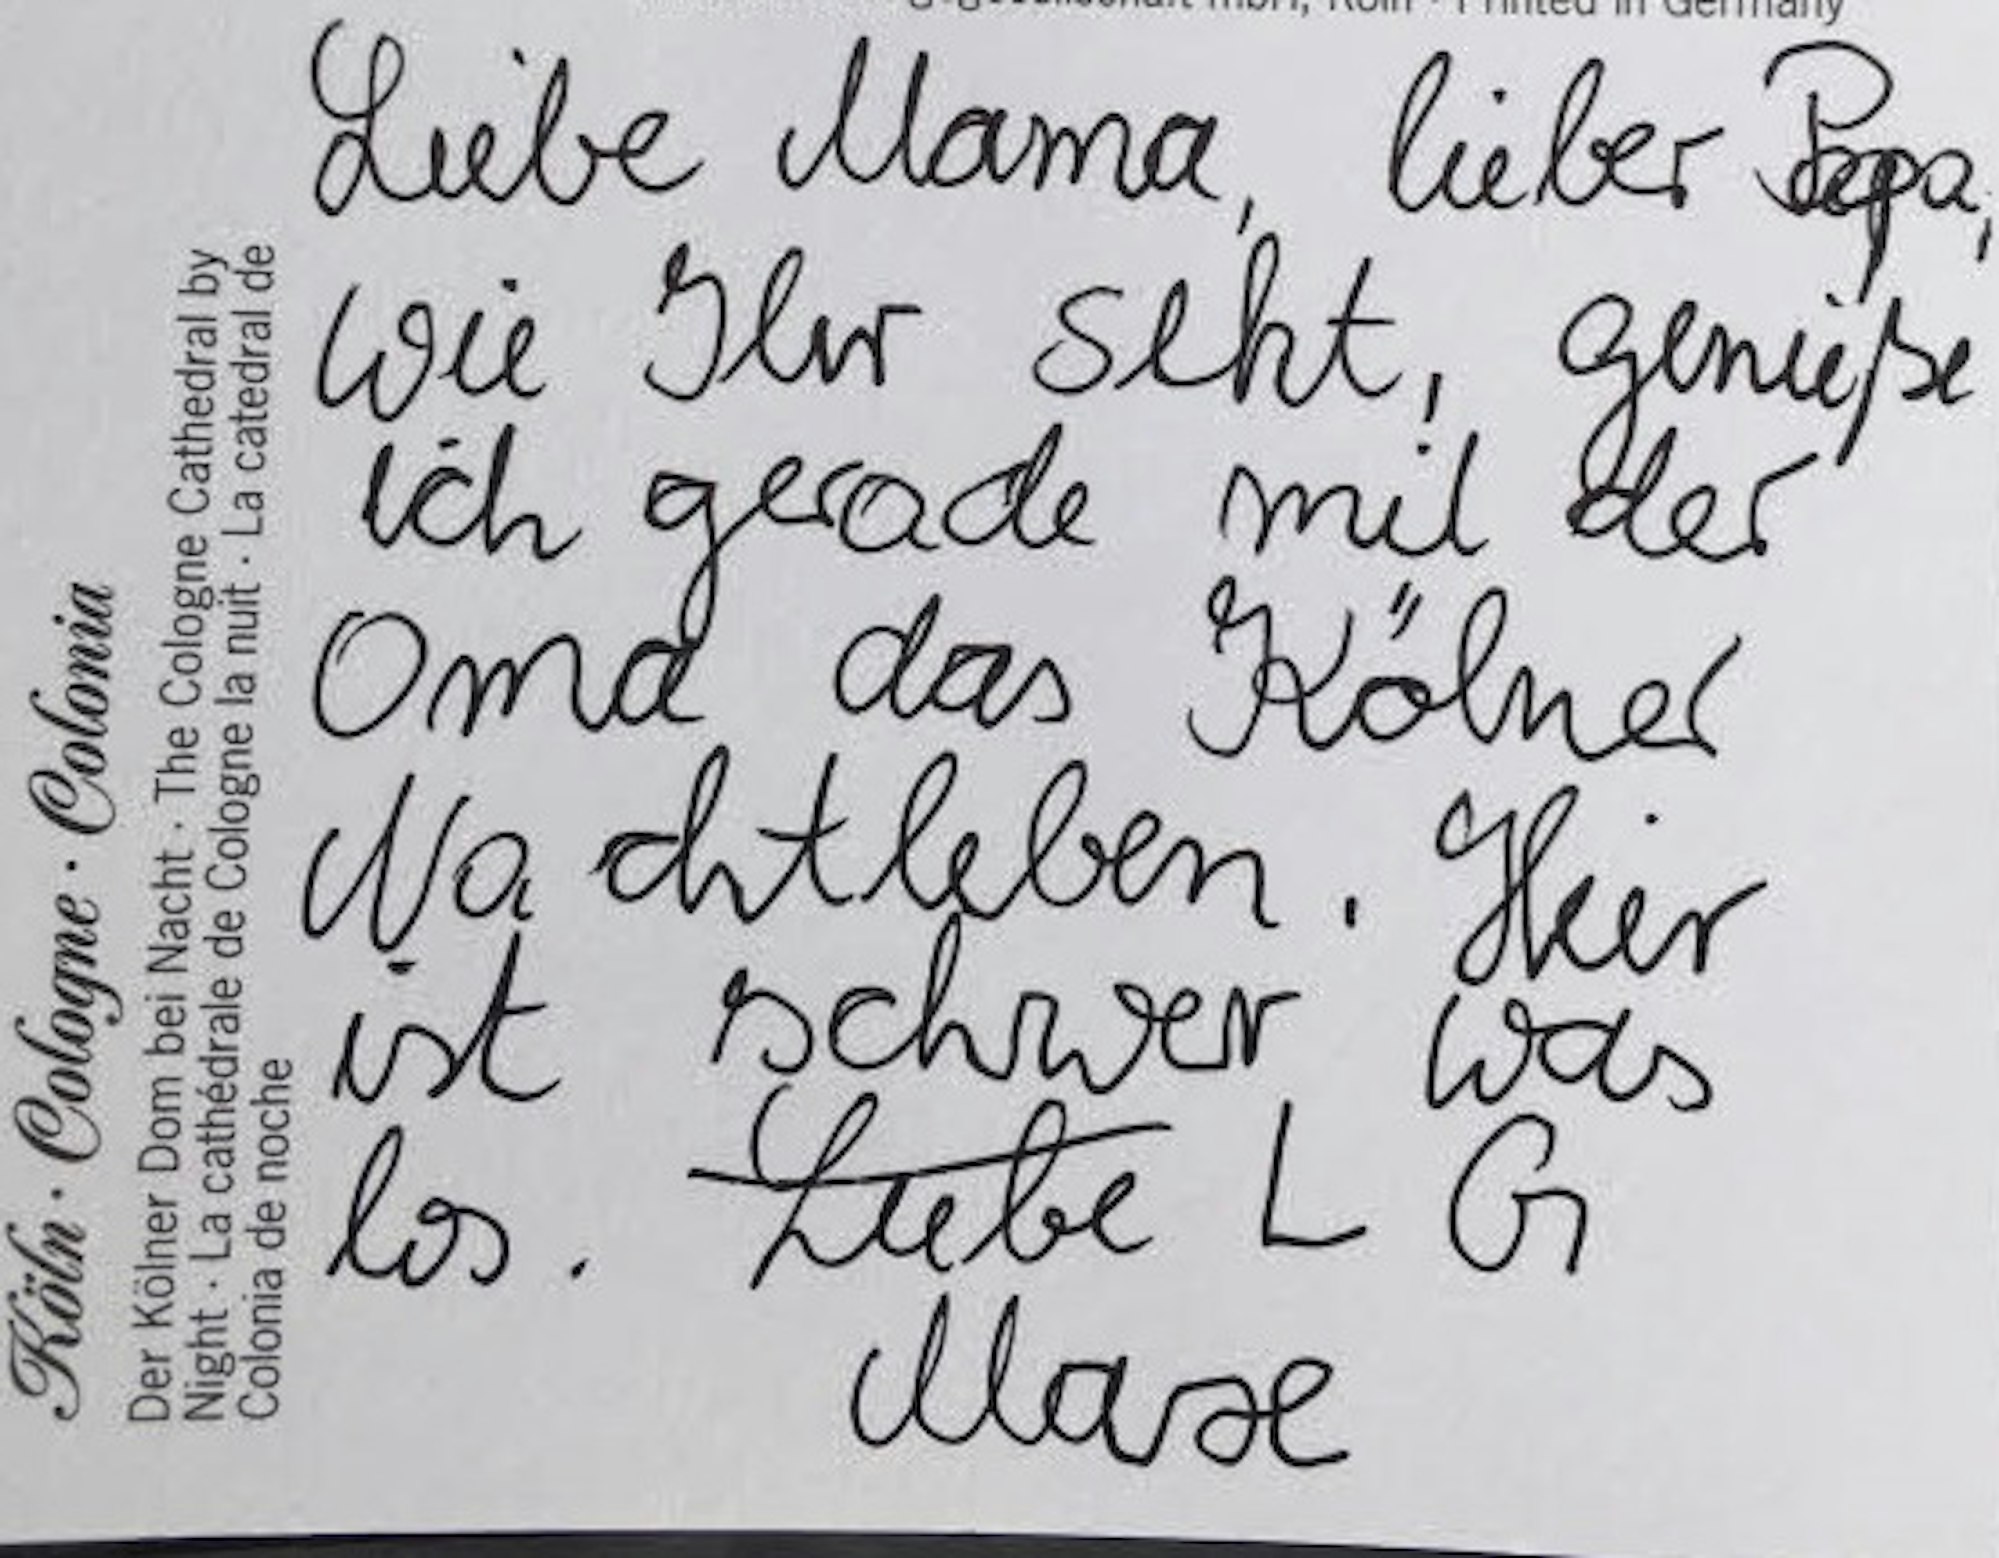 Liebe Mama, lieber Papa,
wie Ihr seht, genieße
ich gerade mit der
Oma das Kölner
Nachtleben. Hier
ist schwer was
los. Liebe L G
Köln · Cologne · Colonia
Der Kölner Dom bei Nacht · The Cologne Cathedral by
Night · La cathédrale de Cologne la nuit · La catedral de
Colonia de noche
mbH, Köln · Printed in Germany